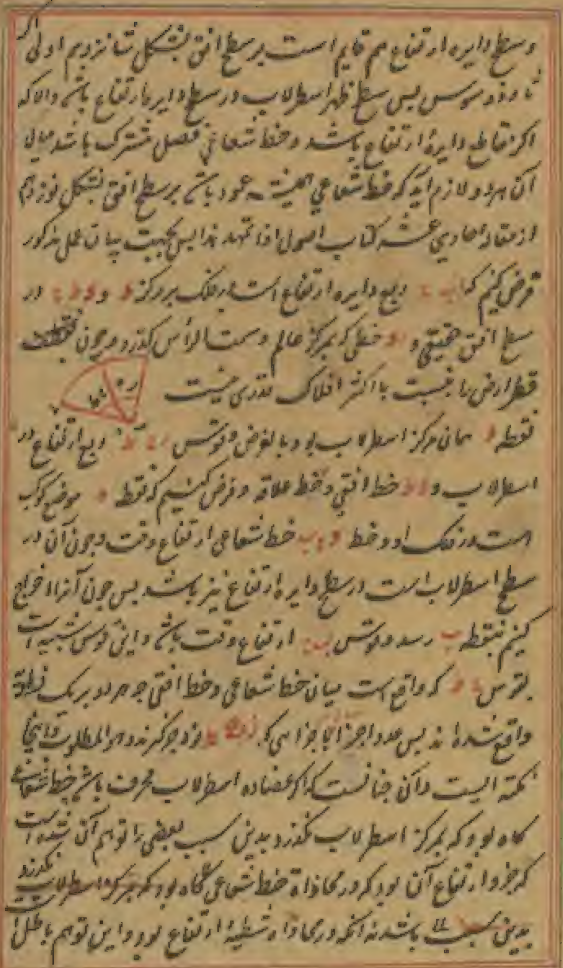 و سطح دایره ارتفاع هم قایم است بر سطح افق بشکل شانزدهم اولی
ثاوذوسیوس پس سطح ظهر اسطرلاب در سطح دایره ارتفاع باشد والا که
اکر تقاطع دایره ارتفاع باشد و خط شعاعی فصل مشترک باشد میان
آن هر دو لازم آید که خط شعاعی همیشه عمود باشد بر سطح افق بشکل نوزدهم
از مقاله احادی عشر کتاب اصول اذا تمهد هذا پس بجهت بیان عمل مذکور
فرض کنیم که ربع دایره ارتفاع است در فلک بر مرکز و در
سطح افق حقیقی و خطی که بمرکز عالم و سمت الرأس کذرد و چون
قطر ارض را نسبت با اکثر افلاک قدری نیست
نقطه همان مرکز اسطرلاب بود و بالفرض قوس ربع ارتفاع در
اسطرلاب و خط افقی و خط علاقه و فرض کنیم که نقطه موضع کوکب
است در فلک او و خط خط شعاعی ارتفاع وقت و چون آن در
سطح اسطرلاب است در سطح دایره ارتفاع نیز باشد پس چون آنرا اخراج
کنیم بنقطه رسد و قوس ارتفاع وقت باشد و این قوس شبیه است
بقوس که واقع است میان خط شعاعی و خط افقی چو هر دو بر یک
واقع شده اند پس عدد اجزا از جزو کیرند و هو المطلوب و اینجا
نکته ایست و آن چنانست که اکر عضاده اسطرلاب محرف باشد خط شعاعی
کاه بود که بمرکز اسطرلاب نکذرد بدین سبب بعضی را توهم آن شده است
که جزو ارتفاع آن بود که در محاذاة خط شعاعی کاه بود که بمرکز اسطرلاب نکذرد
بدین سبب باشد نه آنکه در محاذاة شظیه ارتفاع بود و این توهم باطل